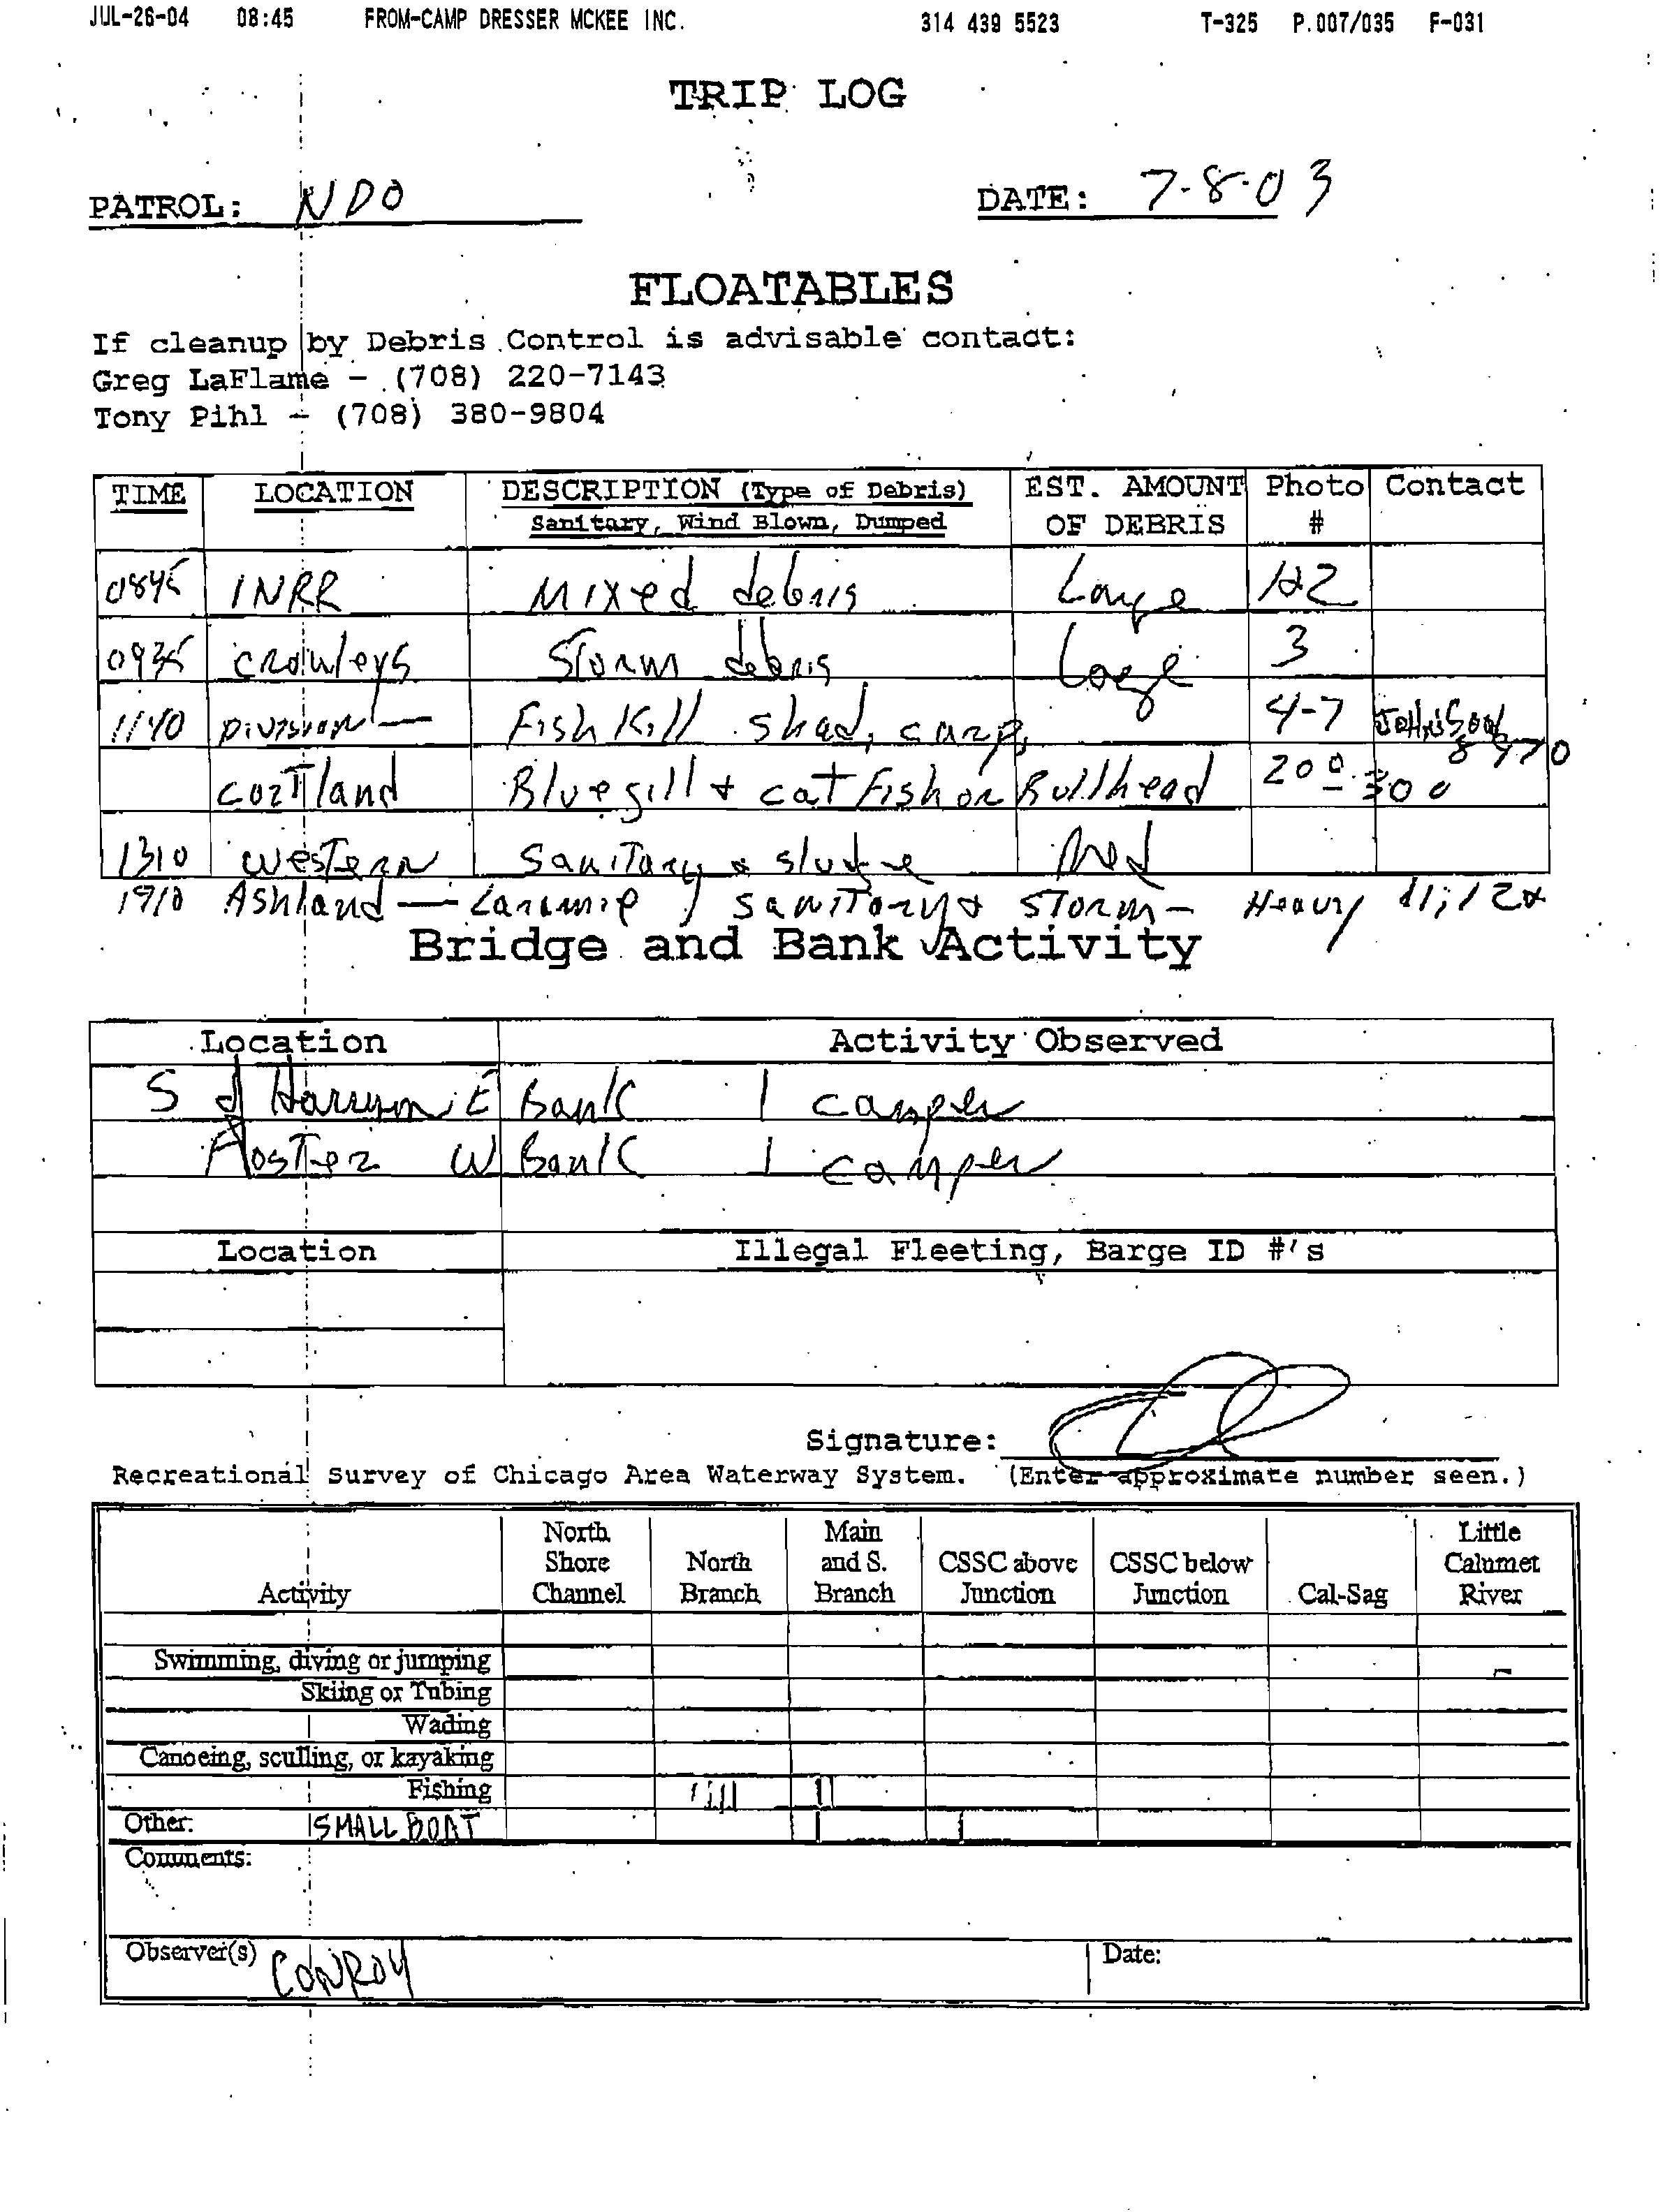 JUL-26-04 08:45 FROM-CAMP DRESSER MCKEE INC. 314 439 5523 T-325 P.007/035 F-031
TRIP LOG
PATROL: NDO DATE: 7-8-03
FLOATABLES
If cleanup by Debris Control is advisable contact:
Greg LaFlame - (708) 220-7143
Tony Pihl - (708) 380-9804
TIME LOCATION DESCRIPTION (Type of Debris) EST. AMOUNT Photo Contact
Sanitary, Wind Blown, Dumped OF DEBRIS #
0845 INRR Mixed debris Large 1&2
0935 Crowleys Storm debris Large 3
1140 Division — Fish Kill shad, carp, 4-7 JOHNSON
8970
Cortland Bluegill + catfish or Bullhead 200-300
1310 Western Sanitary & sludge Med
1910 Ashland — Laramie, sanitary & storm - Heavy 11,12
Bridge and Bank Activity
Location Activity Observed
S of Harrison E Bank 1 camper
Foster W Bank 1 camper
Location Illegal Fleeting, Barge ID #'s
Signature:
Recreational Survey of Chicago Area Waterway System. (Enter approximate number seen.)
North Main Little
Shore North and S. CSSC above CSSC below Calumet
Activity Channel Branch Branch Junction Junction Cal-Sag River
Swimming, diving or jumping
Skiing or Tubing
Wading
Canoeing, sculling, or kayaking
Fishing IIII II
Other: SMALL BOAT I I
Comments:
Observer(s) CONROY Date: